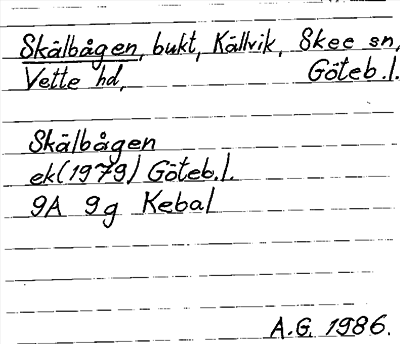 Skälbågen, bukt, Källvik, Skee sn,
Vette hd, Göteb.l.
Skälbågen
ek(1979) Göteb.l.
9A 9g Kebal
A.G. 1986.